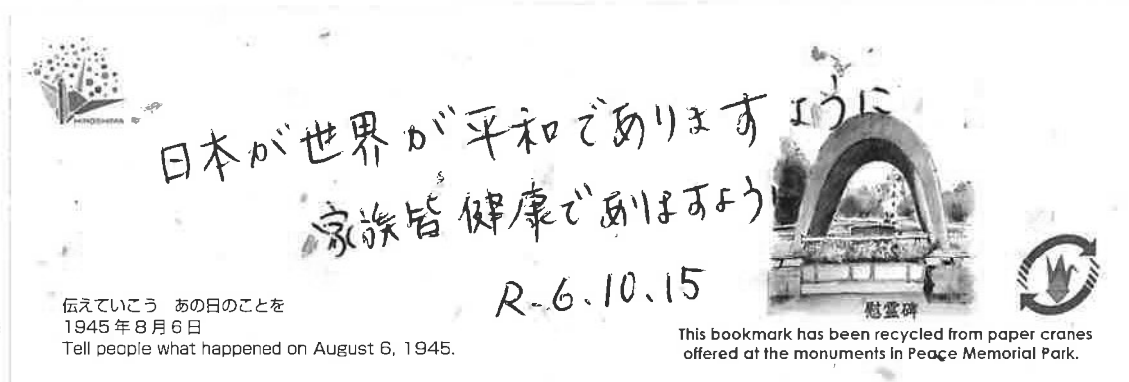 HIROSHIMA
日本が世界が平和でありますように
家族皆健康でありますよう
R-6.10.15
伝えていこう あの日のことを
1945年8月6日
Tell people what happened on August 6, 1945.
慰霊碑
This bookmark has been recycled from paper cranes
offered at the monuments in Peace Memorial Park.